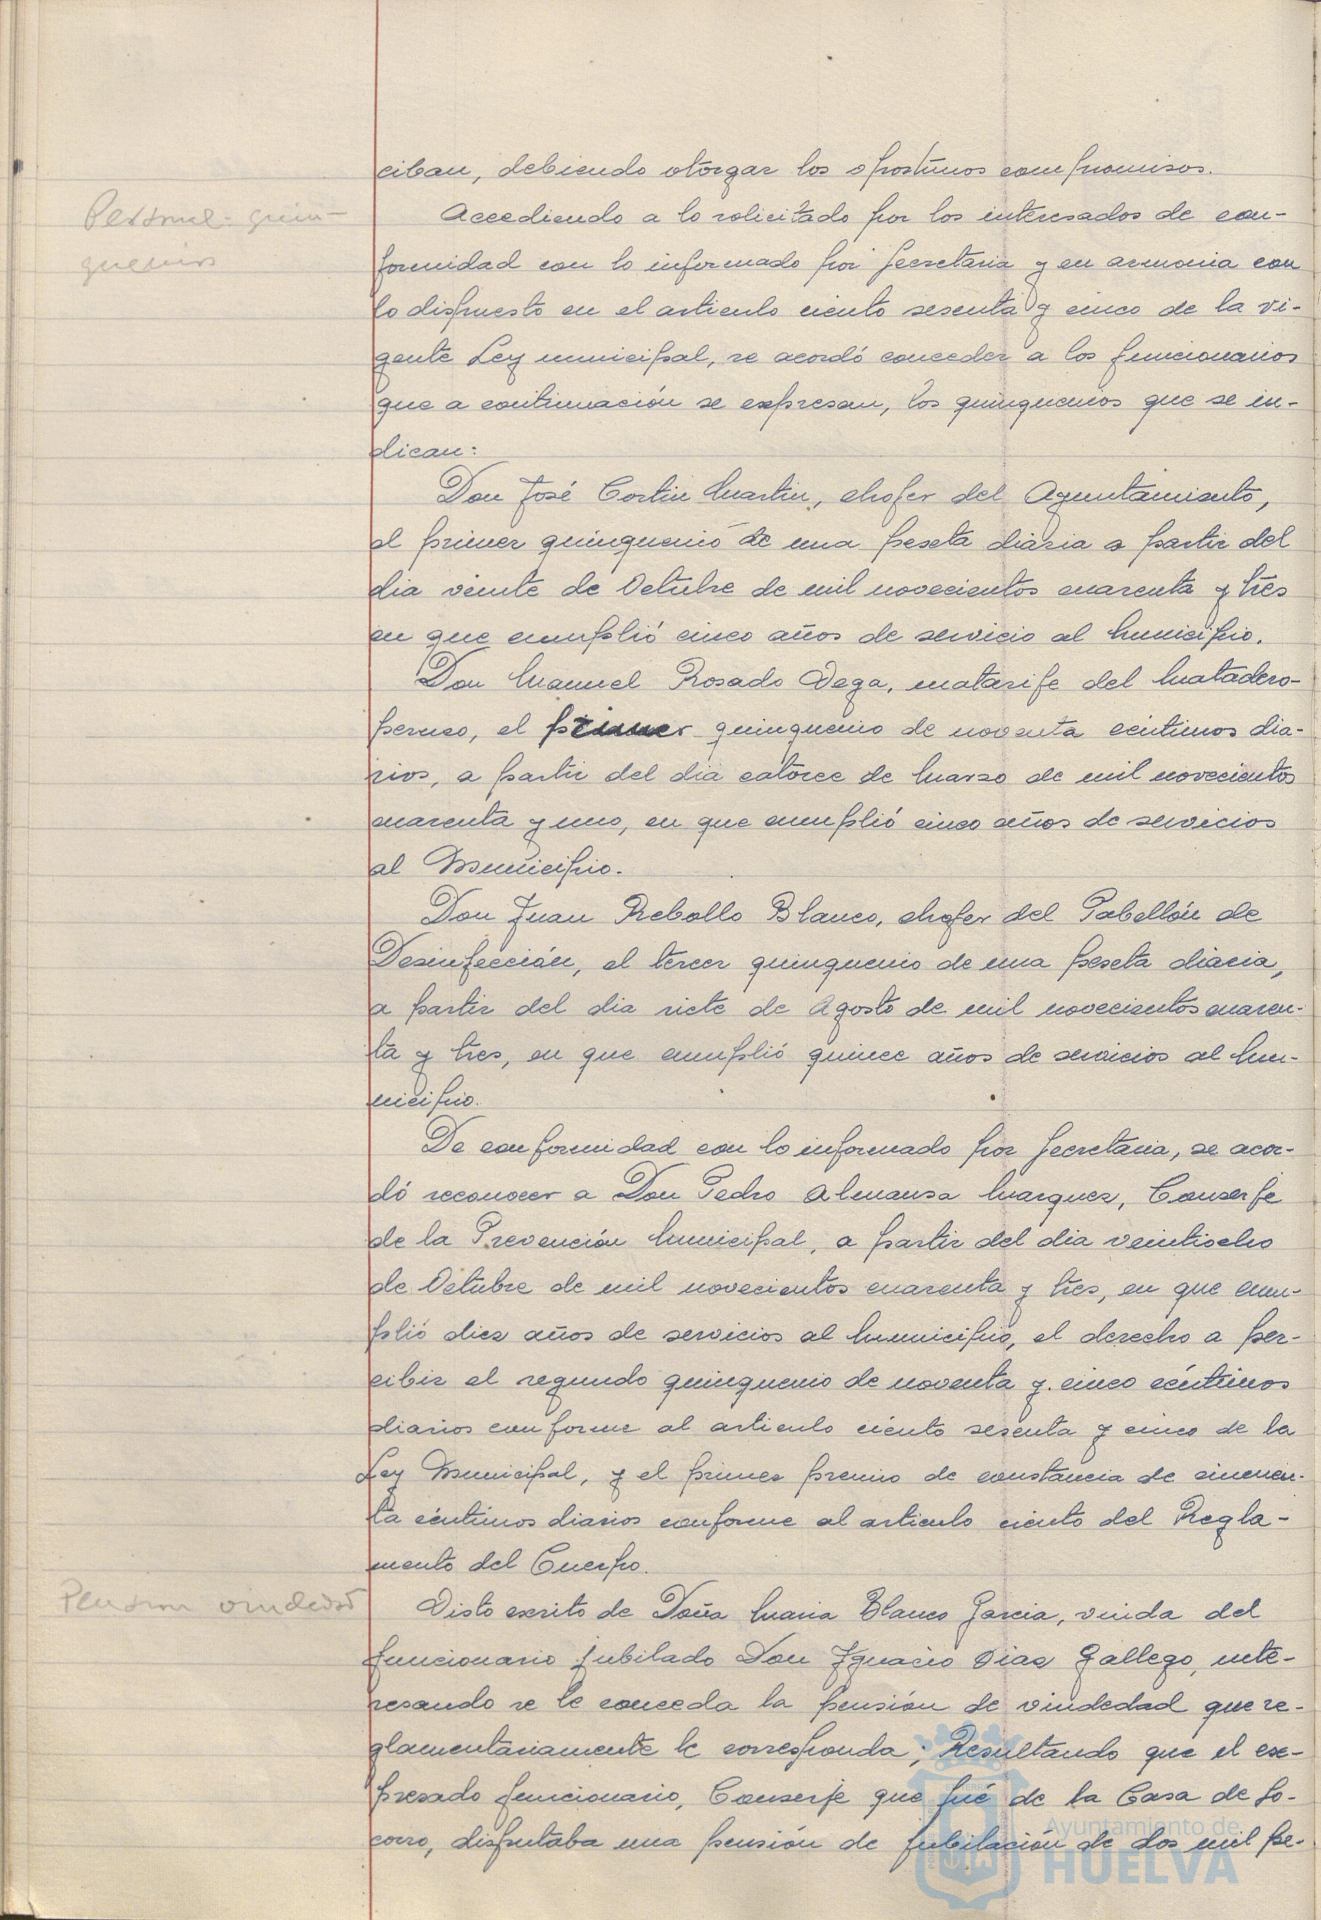 ciban, debiendo otorgar los oportunos compromisos.
Personal-quin-
quenios
Accediendo a lo solicitado por los interesados de con-
formidad con lo informado por Secretaria y en armonia con
lo dispuesto en el articulo ciento sesenta y cinco de la vi-
gente Ley municipal, se acordó conceder a los funcionarios
que a continuación se expresan, los quinquenios que se in-
dican:
Don José Martin, chofer del Ayuntamiento,
el primer quinquenio de una peseta diaria a partir del
dia veinte de Octubre de mil novecientos cuarenta y tres
en que cumplió cinco años de servicio al Municipio.
Don Manuel Rosado Vega, matarife del Matadero
perneo, el primer quinquenio de noventa céntimos dia-
rios, a partir del dia catorce de Marzo de mil novecientos
cuarenta y uno, en que cumplió cinco años de servicios
al Municipio.
Don Juan Rebollo Blanco, chofer del Pabellón de
Desinfección, el tercer quinquenio de una peseta diaria,
a partir del dia siete de Agosto de mil novecientos cuaren-
ta y tres, en que cumplió quince años de servicios al Mu-
nicipio.
De conformidad con lo informado por Secretaria, se acor-
dó reconocer a Don Pedro Almansa Marquez, Conserje
de la Prevención Municipal, a partir del dia veintiocho
de Octubre de mil novecientos cuarenta y tres, en que cum-
plió diez años de servicios al Municipio, el derecho a per-
cibir el segundo quinquenio de noventa y cinco céntimos
diarios conforme al articulo ciento sesenta y cinco de la
Ley Municipal, y el primer premio de constancia de cincuen-
ta céntimos diarios conforme al articulo ciento del Regla-
mento del Cuerpo.
Pension viudedad
Visto escrito de Doña Maria Blanco Garcia, viuda del
funcionario jubilado Don Ignacio Diaz Gallego, inte-
resando se le conceda la pensión de viudedad que re-
glamentariamente le corresponda; Resultando que el ex-
presado funcionario, Conserje que fué de la Casa de So-
corro, disfrutaba una pensión de jubilación de dos mil pe-
Ayuntamiento de
HUELVA